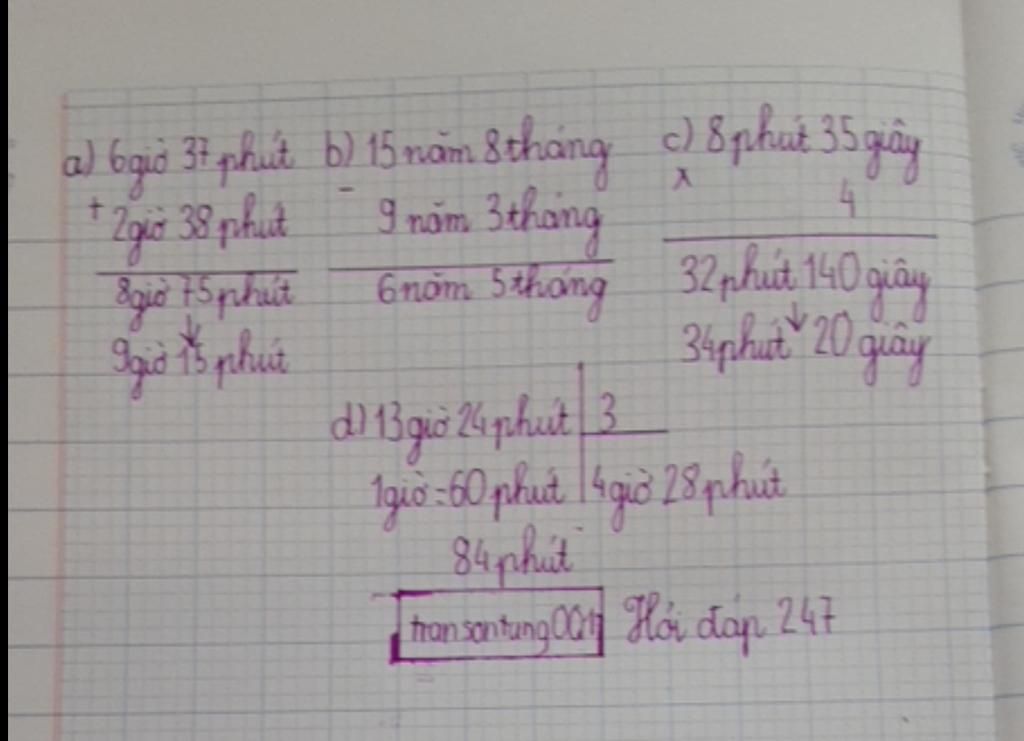 a) 6 giờ 37 phút
+
2 giờ 38 phút
8 giờ 75 phút
↓
9 giờ 15 phút
b) 15 năm 8 tháng
-
9 năm 3 tháng
6 năm 5 tháng
c) 8 phút 35 giây
x
4
32 phút 140 giây
↓
34 phút 20 giây
d) 13 giờ 24 phút | 3
1 giờ = 60 phút | 4 giờ 28 phút
84 phút
transontung001 Hỏi đáp 247